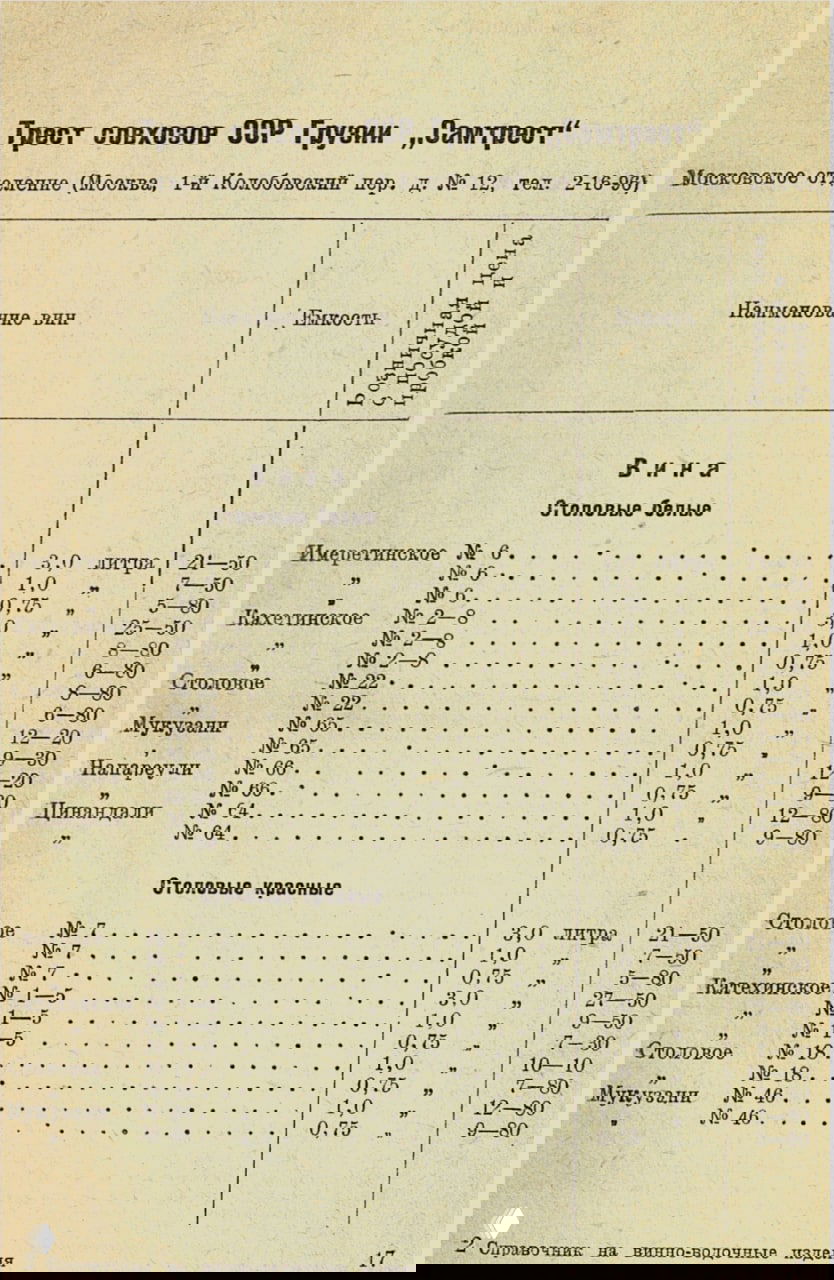 Трест совхозов ССР Грузии „Самтрест“
еление (Москва, 1-й Колобовский пер. д. № 12, тел. 2-16-96) Московское от
ние вин Емкость Наименован
Вина
Столовые белые
3,0 литра 21—50 Имеретинское № 6
1,0 „ 7—50 „ № 6
0,75 „ 5—80 „ № 6
,0 „ 25—50 Кахетинское № 2—8 3,0
„ 8—80 „ № 2—8 1,0
„ 6—80 „ № 2—8 0,75
8—80 Столовое № 22 1,0 „
6—80 „ № 22 0,75 „
12—20 Мукузани № 65 1,0 „
9—30 „ № 65 0,75 „
—20 Напареули № 66 1,0 „
„ № 66 0,75 „ 9—
Цинандали № 64 1,0 „ 12—80
„ № 64 0,75 „ 9—80
Столовые красные
ое № 7 3,0 литра 21—50 Столов
№ 7 1,0 „ 7—50 „
№ 7 0,75 „ 5—80 „
№ 1—5 3,0 „ 27—50 Катехинское
1—5 1,0 „ 9—50 „ №
—5 0,75 „ 7—30 „ № 1
1,0 „ 10—10 Столовое № 18
0,75 „ 7—80 „ № 18
1,0 „ 12—80 Мукузани № 46
0,75 „ 9—80 „ № 46
17 2 Справочник на винно-водочные издел